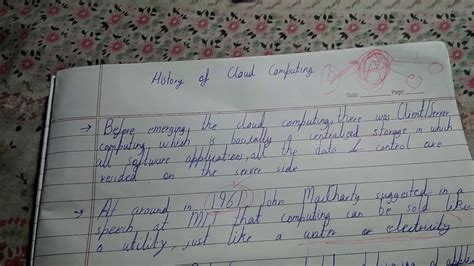 History of Cloud Computing
Date Page
→ Before emerging the cloud computing, there was Client/Server
computing which is basically a centralised storage in which
all software applications, all the data & control are
resided on the server side
→ At around in 1961, John MacCharty suggested in a
speech at MIT that computing can be sold like
a utility, just like a water or electricity